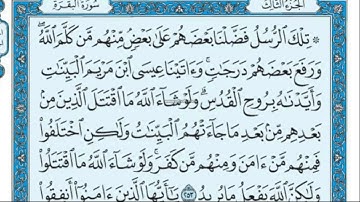 الجزء الثالث سورة البقرة
۞ تِلْكَ ٱلرُّسُلُ فَضَّلْنَا بَعْضَهُمْ عَلَىٰ بَعْضٍ مِّنْهُم مَّن كَلَّمَ ٱللَّهُ
وَرَفَعَ بَعْضَهُمْ دَرَجَٰتٍ وَءَاتَيْنَا عِيسَى ٱبْنَ مَرْيَمَ ٱلْبَيِّنَٰتِ
وَأَيَّدْنَٰهُ بِرُوحِ ٱلْقُدُسِ وَلَوْ شَآءَ ٱللَّهُ مَا ٱقْتَتَلَ ٱلَّذِينَ مِنۢ
بَعْدِهِم مِّنۢ بَعْدِ مَا جَآءَتْهُمُ ٱلْبَيِّنَٰتُ وَلَٰكِنِ ٱخْتَلَفُوا۟
فَمِنْهُم مَّنْ ءَامَنَ وَمِنْهُم مَّن كَفَرَ وَلَوْ شَآءَ ٱللَّهُ مَا ٱقْتَتَلُوا۟
وَلَٰكِنَّ ٱللَّهَ يَفْعَلُ مَا يُرِيدُ ٢٥٣ يَٰٓأَيُّهَا ٱلَّذِينَ ءَامَنُوٓا۟ أَنفِقُوا۟